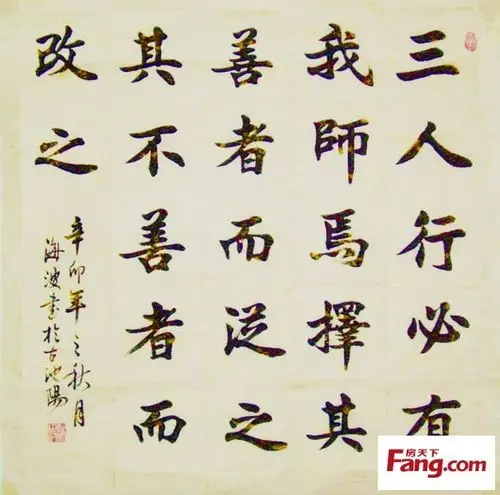 三人行必有
我師焉擇其
善者而从之
其不善者而
改之
辛卯年之秋月
海波書於古池陽
房天下
Fang.com